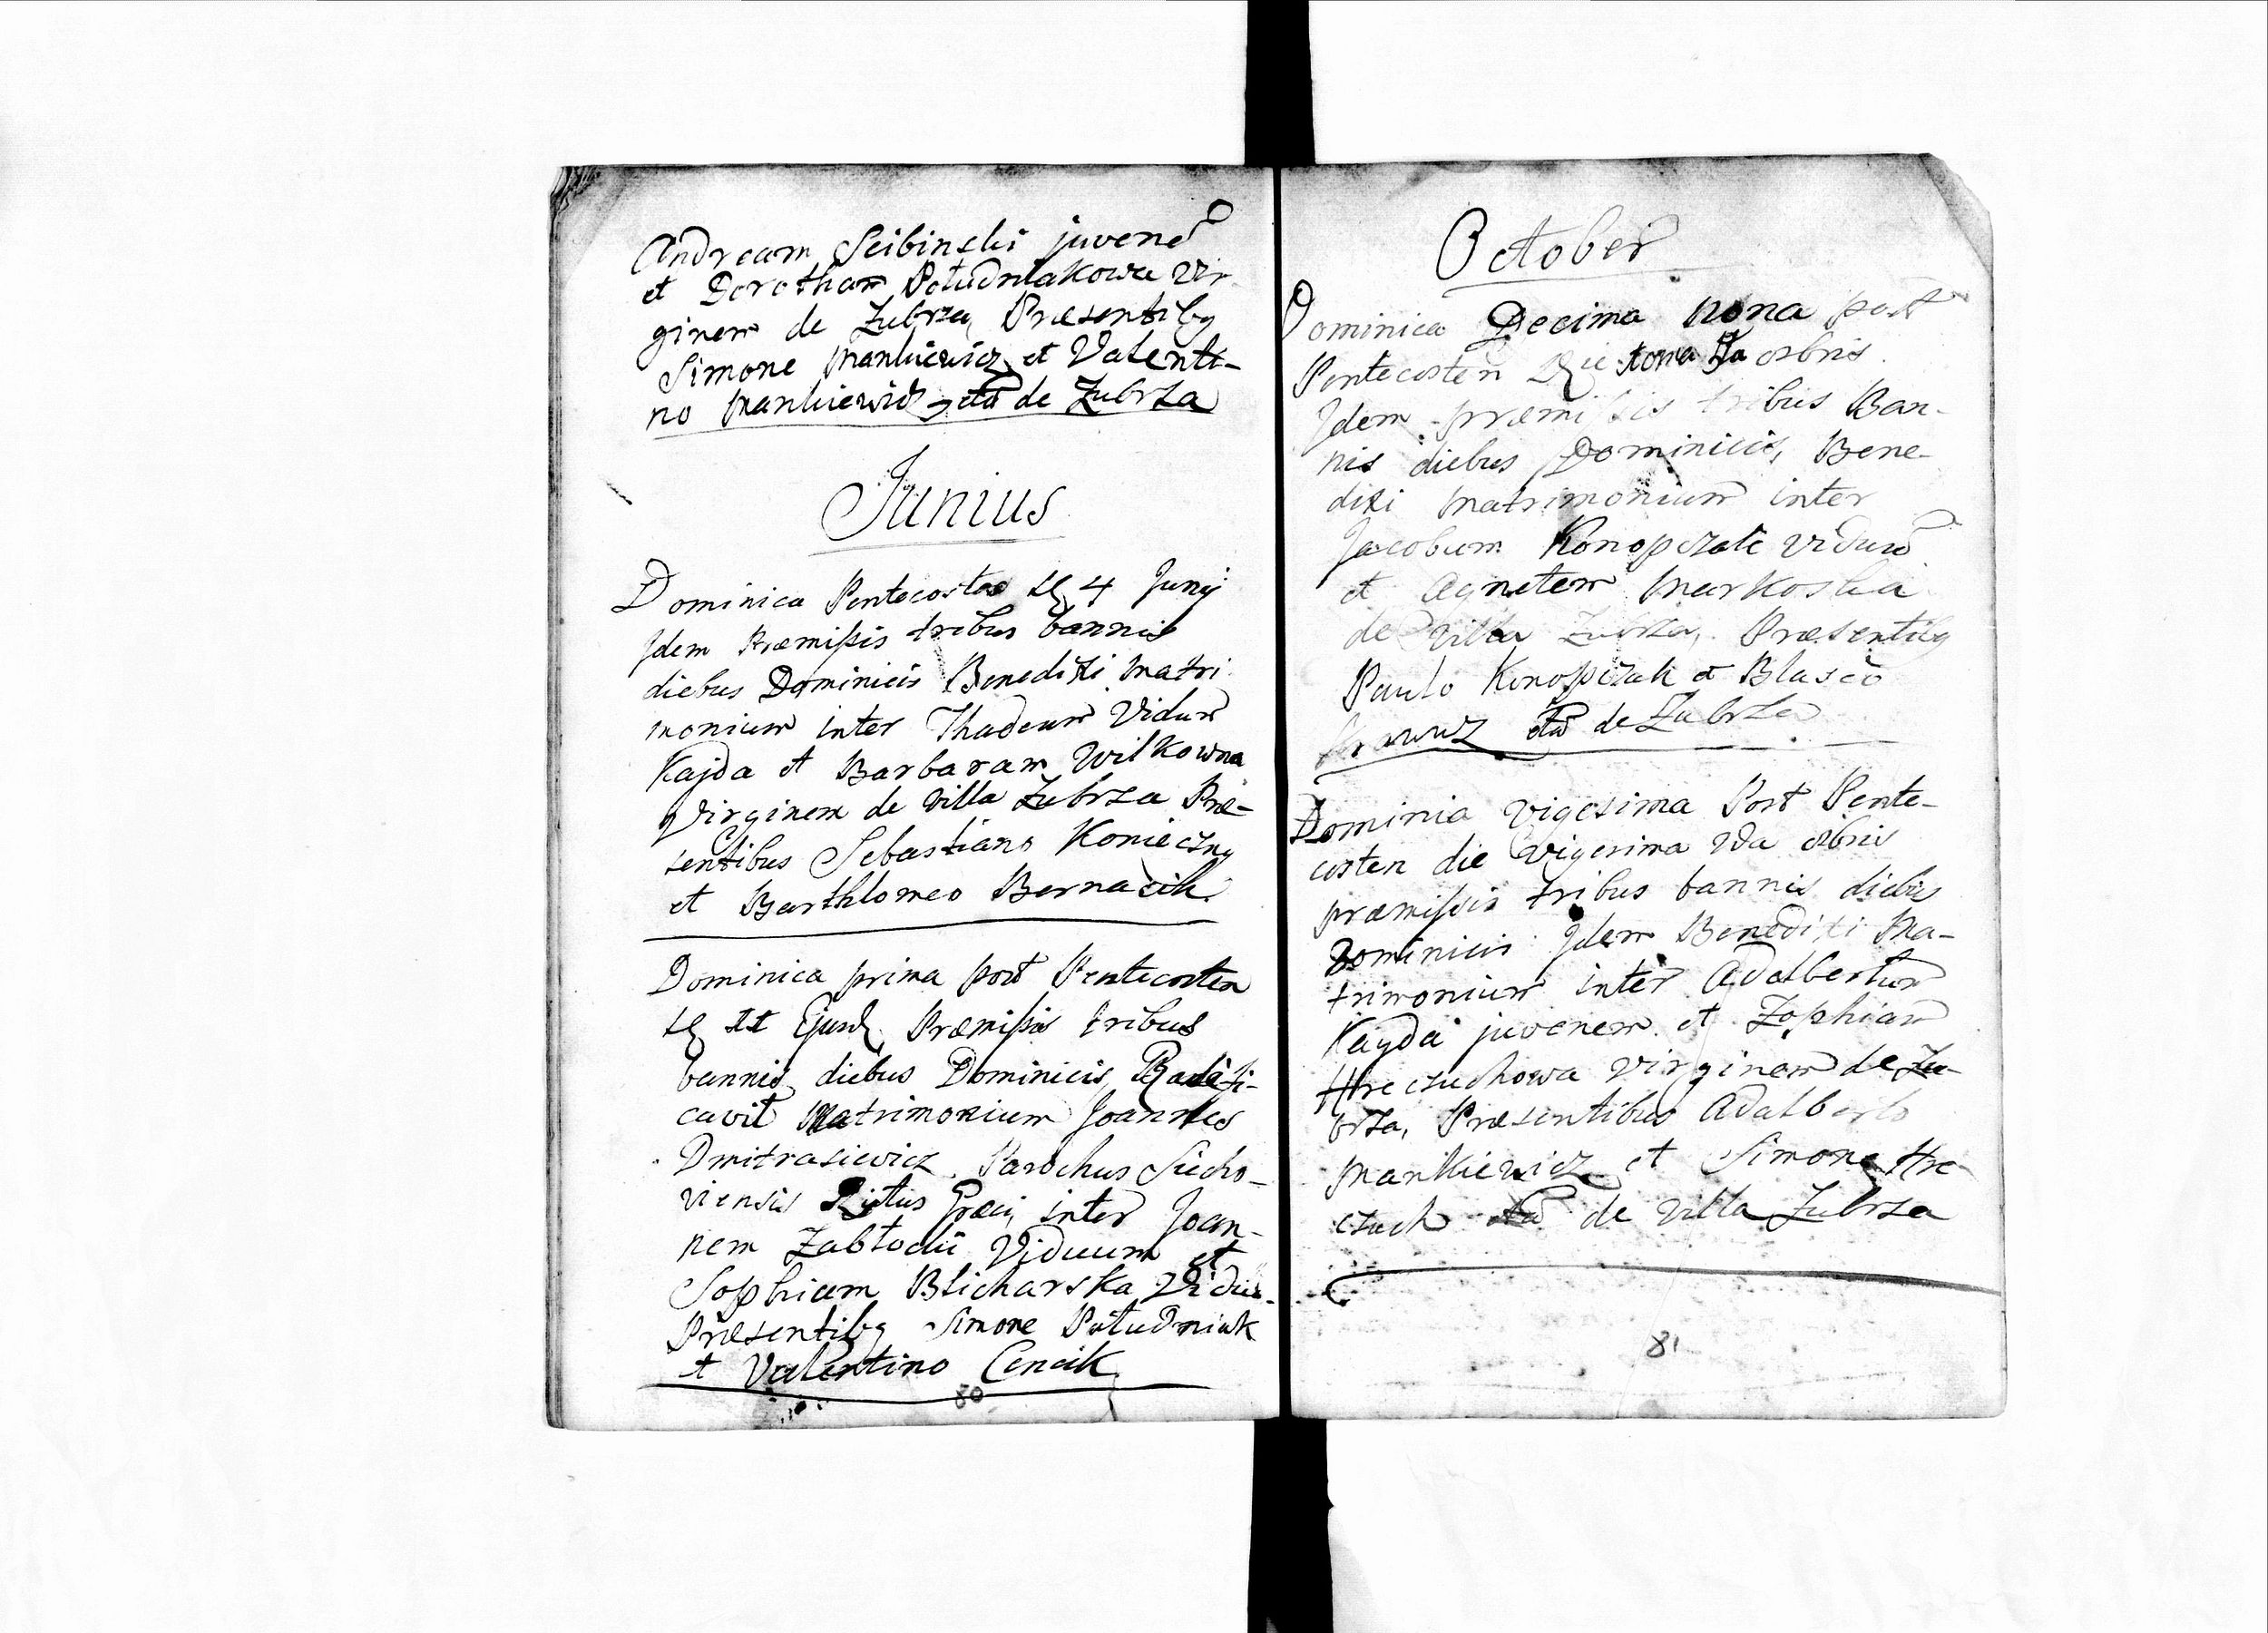 Andream Scibinski juvenē
et Dorotham Południakowa Vir
ginem de Zubrza, Præsentibg
Simone Mankiewicz et Valenti-
no Mankiewicz de Zubrza
Junius
Dominica Pentecostes 4 Junij
Idem Præmissis tribus bannis
diebus Dominicis Benedixi Matri
monium inter Thadeum Vidum
Kajda et Barbaram Wilkowna
Virginem de Villa Zubrza Præ-
sentibus Sebastiano Konieczny
et Barthlomeo Bernacik
Dominica prima post Pentecosten
11 Ejusd, Præmissis tribus
bannis, diebus Dominicis,
cavit Matrimonium Joannes
Dmitrasiewicz Parochus Siecho-
viensis Ritus Græci, inter Joan-
nem Zabłocki Viduum et
Sophiam Blicharska Vidu-
Præsentibg Simone Południak
et Valentino Cencik
80
October
Dominica Decima nona post
Pentecosten Die 8bris
Idem præmissis tribus Ban-
nis diebus Dominicis, Bene-
dixi Matrimonium inter
Jacobum Konopczak Viduū
et Agnetem Markoska
de Villa Zubrza, Præsentibg
Paulo Konopczak et Blasio
de Zubrza
Dominia Vigesima Post Pente-
costen die Vigesima 8bris
præmissis tribus bannis diebus
Dominicis Idem Benedixi Ma-
trimonium inter Adalbertum
Kayda juvenem et Zophiam
Hreczuchowa Virginem de Zu-
brza, Præsentibus Adalberto
Mankiewicz et Simone Hre
czuch de Villa Zubrza
81